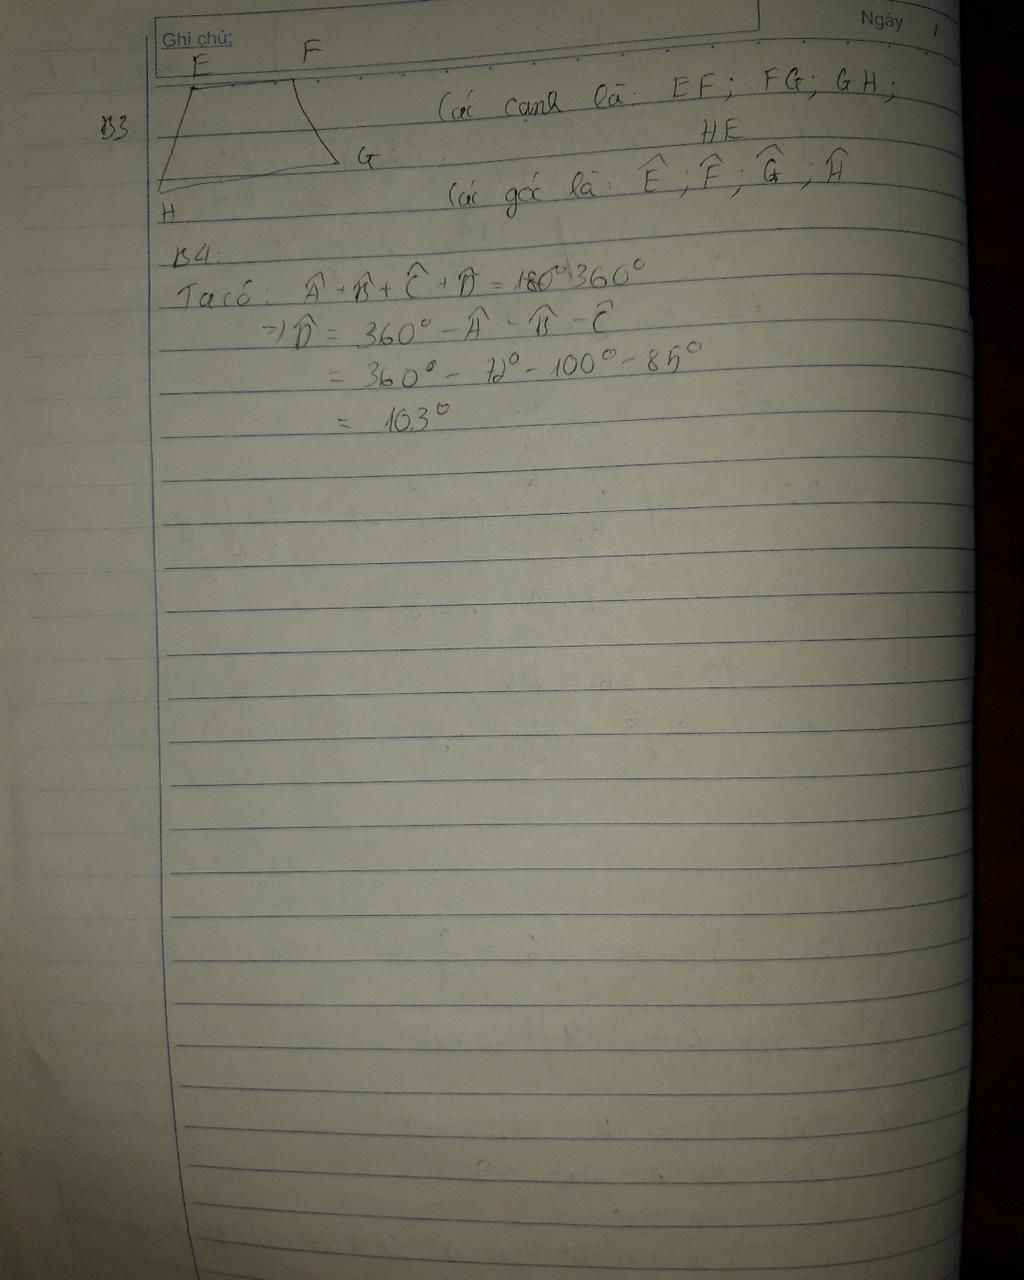 Ghi chú:
Ngày
E F
B3
Các cạnh là: EF; FG; GH;
HE
G
Các góc là: Ê; F̂; Ĝ; Ĥ
H
B4:
Ta có: Â + B̂ + Ĉ + D̂ = 180° 360°
=> D̂ = 360° - Â - B̂ - Ĉ
= 360° - 72° - 100° - 85°
= 103°